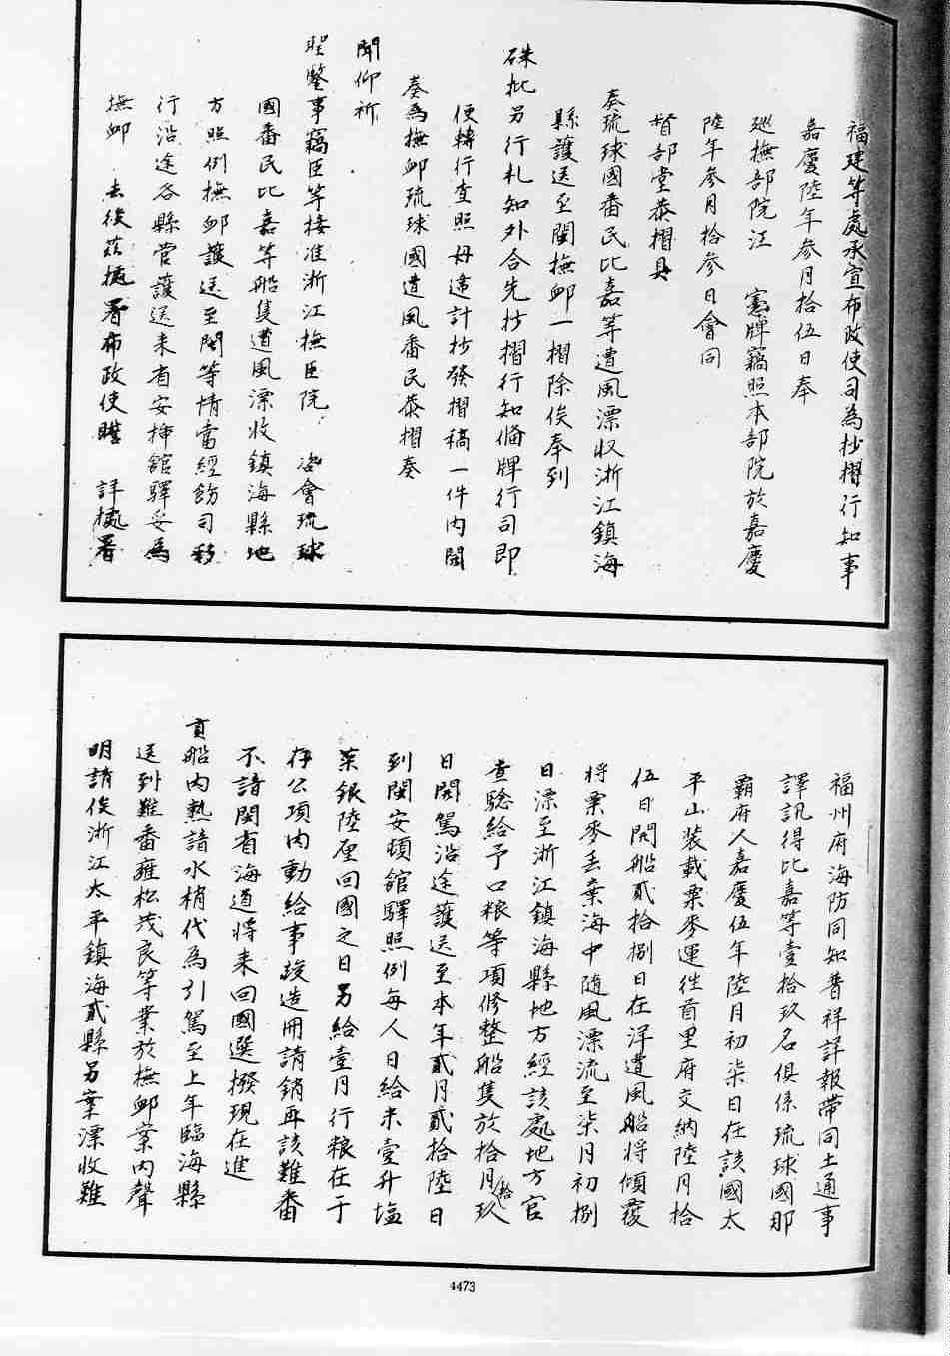 福建等處承宣布政使司為抄摺行知事
嘉慶陸年參月拾伍日奉
巡撫部院汪 憲牌竊照本部院於嘉慶
陸年參月拾參日會同
督部堂恭摺具
奏琉球國番民比嘉等遭風漂收浙江鎮海
縣護送至閩撫卹一摺除俟奉到
硃批另行札知外合先抄摺行知備牌行司即
便轉行查照毋違計抄發摺稿一件內開
奏為撫卹琉球國遭風番民恭摺奏
聞仰祈
聖鑒事竊臣等接准浙江撫臣院 咨會琉球
國番民比嘉等船隻遭風漂收鎮海縣地
方照例撫卹護送至閩等情當經飭司移
行沿途各縣營護送来省安揷館驛妥為
撫卹 去後茲據署布政使 詳據署
福州府海防同知普祥詳報帶同土通事
譯訊得比嘉等壹拾玖名俱係琉球國那
霸府人嘉慶伍年陸月初柒日在該國太
平山装載粟麥運徃首里府交納陸月拾
伍日開船貳拾捌日在洋遭風船將傾覆
將粟麥丢棄海中随風漂流至柒月初捌
日漂至浙江鎮海縣地方經該處地方官
查騐給予口粮等項修整船隻於拾月拾玖
日開駕沿途護送至本年貳月貳拾陸日
到閩安頓館驛照例每人日給米壹升塩
菜銀陸厘回國之日另給壹月行粮在于
存公項内動給事竣造冊請銷再該難番
不諳閩省海道将来回國選撥現在進
貢船内熟諳水梢代為引駕至上年臨海縣
送到難番雍松茂良等業於撫卹案内聲
明請俟浙江太平鎮海貳縣另案漂收難
4473